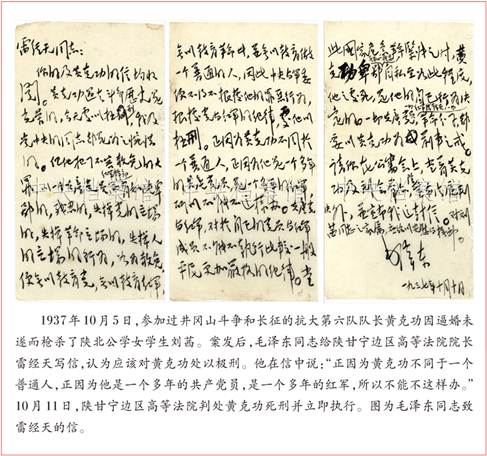 雷经天同志:
你的及黄克功的信均收
阅。黄克功过去斗争历史是
光荣的,今天处以极刑,我及
党中央的同志都是为之惋惜
的。但他犯了不容赦免的大
罪,以一个共产党员红军干部而有如此卑
鄙的,残忍的,失掉党的立场
的,失掉革命立场的,失掉人
的立场的行为,如为赦免,
便无以教育党,无以教育红军,
无以教育革命者,并无以教育做
一个普通的人,因此中央与军委
便不得不根据他的罪恶行为,
根据党与红军的纪律,处他以
极刑。正因为黄克功不同于
一个普通人,正因为他是一个多年
的共产党员,是一个多年的红军,
所以不能不这样办。共产党
与红军,对于自己的党员与红军
成员不能不执行比较一般
平民更加严格的纪律。当
此国家危急革命紧张之时,黄
克功卑鄙无耻残忍自私至如此程度,
他之处死,是他的自己行为决
定的。一切共产党员,一切红军指战员,一切革命分子,都
要以黄克功为前车之戒。
请你在公审会上,当着黄克
功及到会群众,除宣布法庭判
决外,并宣布我这封信。对刘
茜同志之家属,应给以安慰与抚恤。
毛泽东
一九三七年十月十日
1937年10月5日,参加过井冈山斗争和长征的抗大第六队队长黄克功因逼婚未
遂而枪杀了陕北公学女学生刘茜。案发后,毛泽东同志给陕甘宁边区高等法院院长
雷经天写信,认为应该对黄克功处以极刑。他在信中说:“正因为黄克功不同于一个
普通人,正因为他是一个多年的共产党员,是一个多年的红军,所以不能不这样办。”
10月11日,陕甘宁边区高等法院判处黄克功死刑并立即执行。图为毛泽东同志致
雷经天的信。